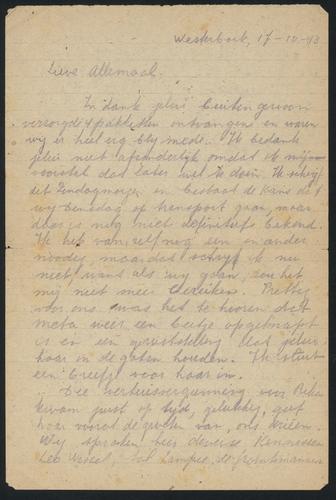 Westerbork, 17-10-43
Lieve Allemaal.
In dank jullie buitengewoon
verzorgde pakketten ontvangen en waren
wij er heel erg blij mede. Ik bedank
jullie niet afzonderlijk omdat ik mij
voorstel dat later wel te doen. Ik schrijf
dit Zondagmorgen en bestaat de kans dat
wij Dinsdag op transport gaan, maar
daar is nog niet definitiefs bekend.
Ik heb vanzelf nog een en ander
noodig, maar dat schrijf ik nu
niet, want als wij gaan, zou het
mij niet meer bereiken. Prettig
voor ons was het te hooren dat
Meta weer een beetje opgeknapt
is en een geruststelling dat jullie
haar in de gaten houden. Ik sluit
een briefje voor haar in.
Die verhuisvergunning voor
kwam juist op tijd, gelukkig, geef
haar vooral de groeten van ons
Wij spraken hier diverse kennissen
Leo